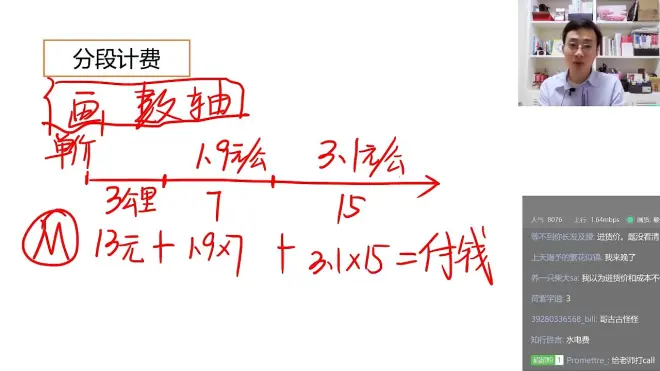 分段计费
画 数轴
单价 1.9元/公 3.1元/公
3公里 7 15
M 13元+1.9×7 +3.1×15=付钱
人气: 8076 上行: 1.64mbps
等不到你长发及腰: 进货价。题没看清
上天赐予的繁花似锦: 我来晚了
养一只柴大sa: 我以为进货价和成本不
荷蜜宇追: 3
39280336568_bill: 哥古古怪怪
知行晋言: 水电费
1 Promettre.: 给老师打call